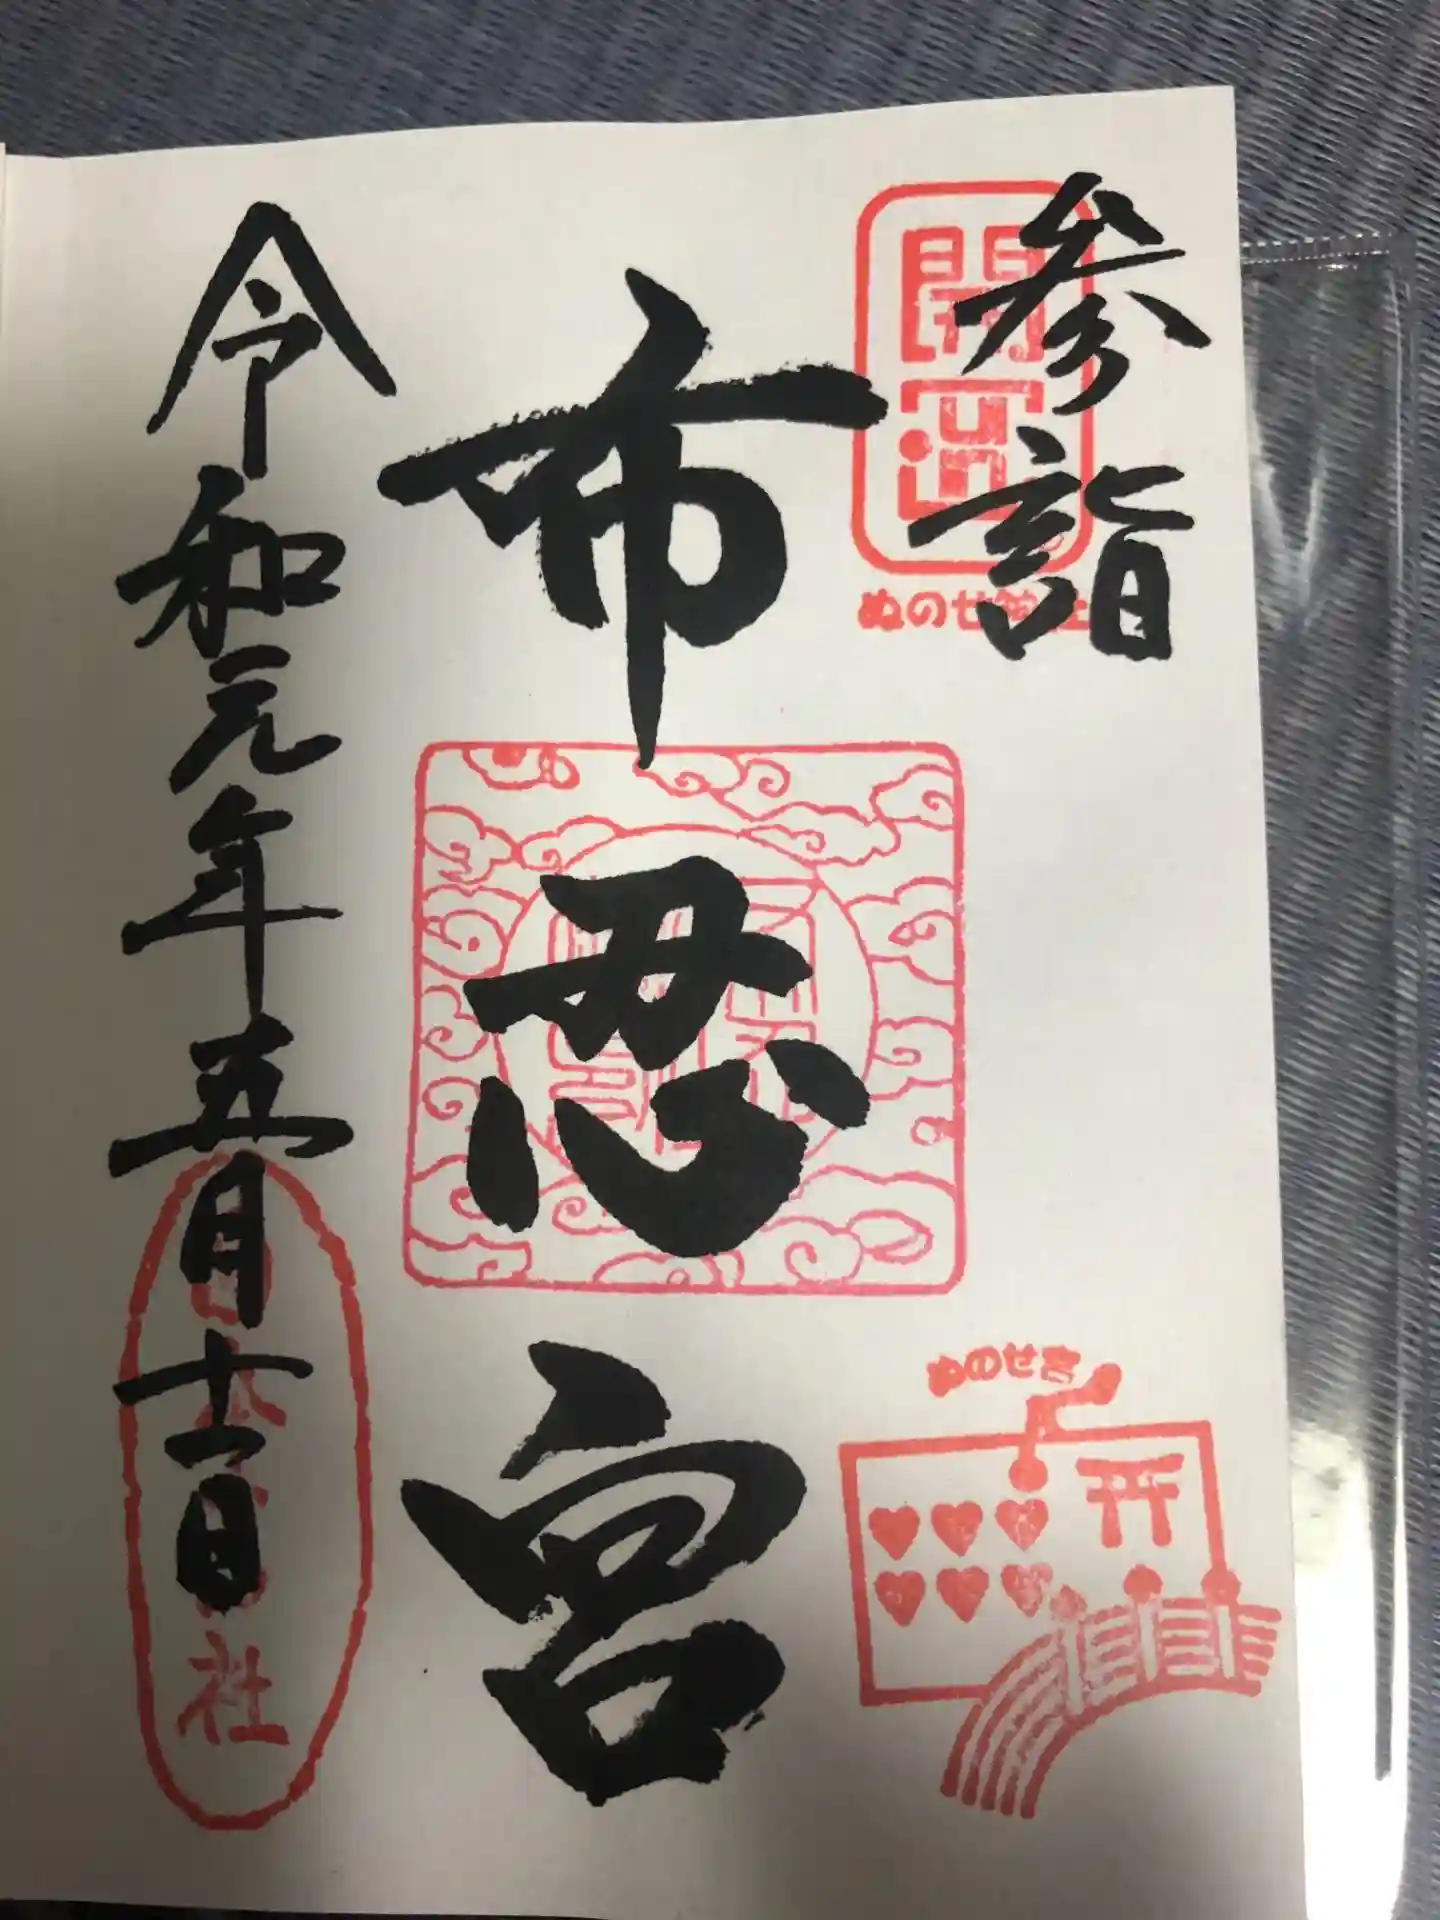 参詣
開運
ぬのせ神社
布忍宮
ぬのせ宮
令和元年五月十一日
社